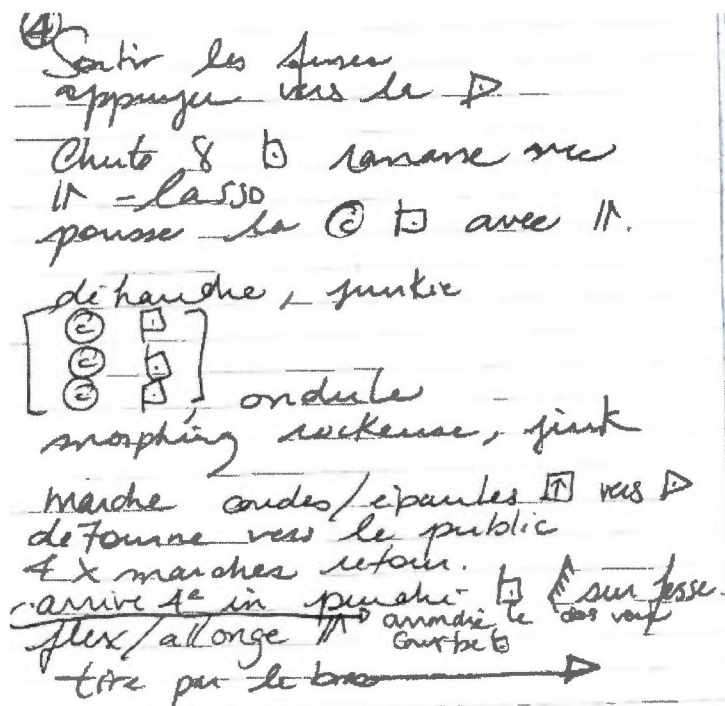 ④
Sortir les fesses
appuyer vers la ▷
Chute 8 ramasse avec
= lasso
pousse la ⓒ avec
déhanche, junkie
ⓒ
ⓒ
ⓒ
, ondule
morphing rockeuse, junk
marche coudes/épaules ↑ vers ▷
détourne vers le public
4 x marches retour.
arrive 4e in sur fesse.
flex/allonge arrondie le dos
Courbe
tire par le bras → ▷